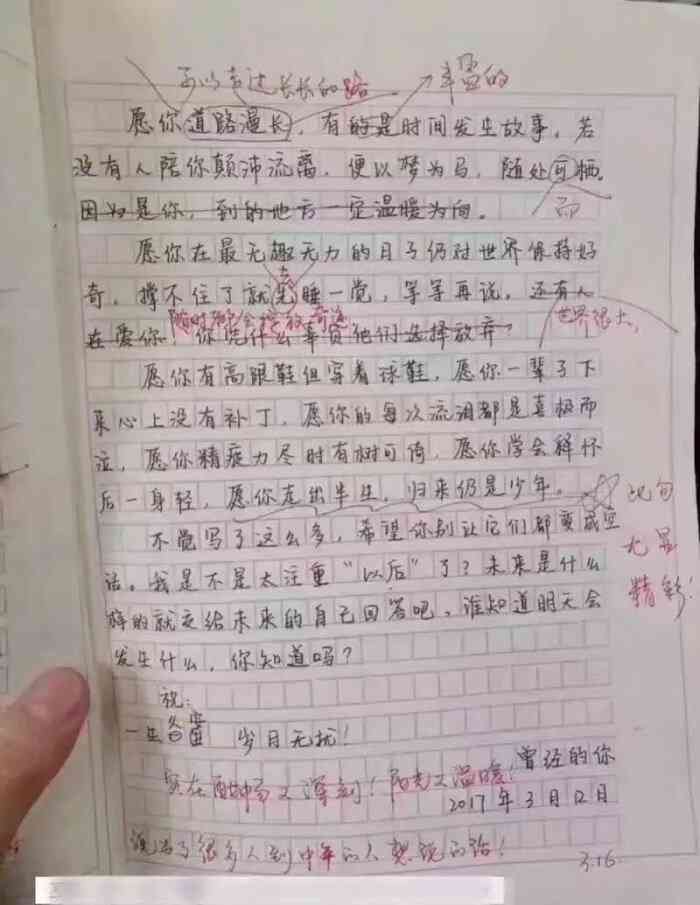 可以走过长长的路
丰盈的
愿你道路漫长，有的是时间发生故事，若
没有人陪你颠沛流离，便以梦为马，随处可栖。
因为是你，到的地方一定温暖为向。
而
愿你在最无趣无力的日子仍对世界保持好
去
奇，撑不住了就先睡一觉，等等再说。还有人
随时都会绽放奇迹
世界很大，
在爱你，你凭什么辜负他们选择放弃？
愿你有高跟鞋但穿着球鞋，愿你一辈子下
来心上没有补丁，愿你的每次流泪都是喜极而
泣，愿你精疲力尽时有树可倚，愿你学会释怀
后一身轻，愿你走出半生，归来仍是少年。
此句
尤显
精彩！
不觉写了这么多，希望你别让它们都变成空
话。我是不是太注重“以后”了？未来是什么
样的就交给未来的自己回答吧，谁知道明天会
发生什么，你知道吗？
祝：
一生 岁月无扰！
曾经的你
实在酣畅又深刻！阳光又温暖！
2017年3月12日
说出了很多人到中年的人想说的话！
3.16